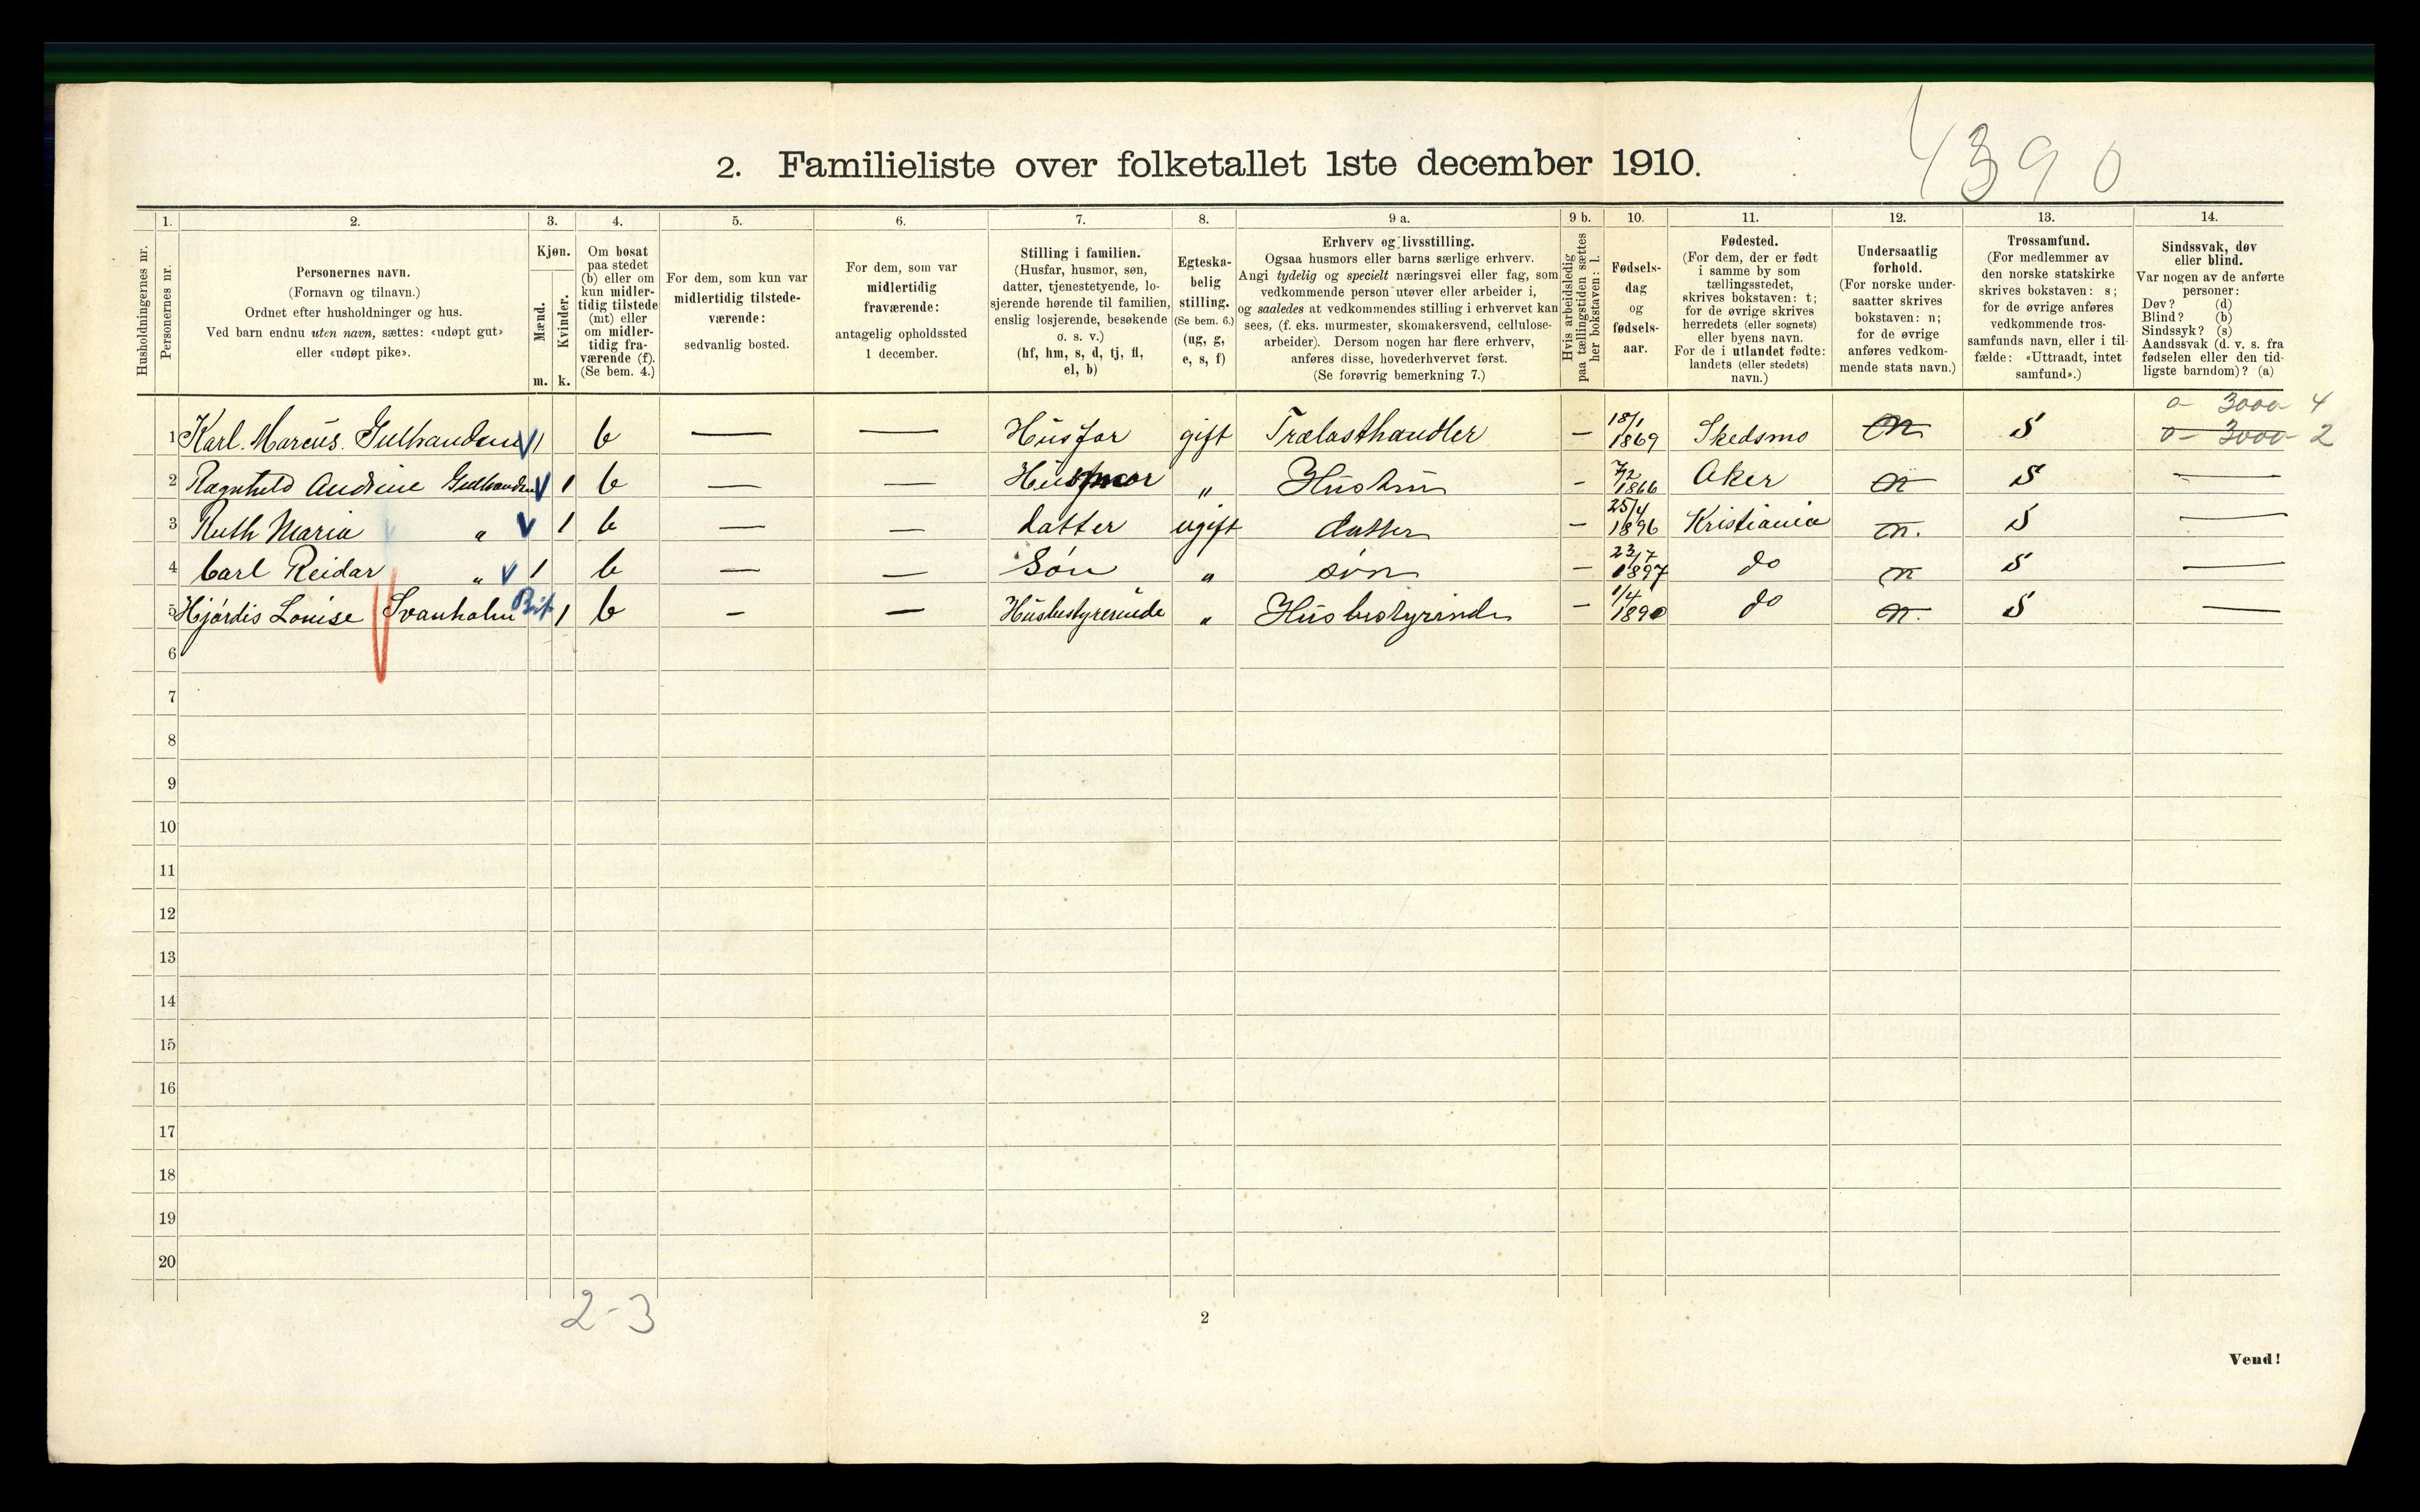 4390
2. Familieliste over folketallet 1ste december 1910.
Husholdningernes nr.
1. Personernes nr.
2. Personernes navn. (Fornavn og tilnavn.) Ordnet efter husholdninger og hus. Ved barn endnu uten navn, sættes: «udøpt gut» eller «udøpt pike».
3. Kjøn. Mænd. Kvinder. m. k.
4. Om bosat paa stedet (b) eller om kun midlertidig tilstede (mt) eller om midlertidig fraværende (f). (Se bem. 4.)
5. For dem, som kun var midlertidig tilstedeværende: sedvanlig bosted.
6. For dem, som var midlertidig fraværende: antagelig opholdssted 1 december.
7. Stilling i familien. (Husfar, husmor, søn, datter, tjenestetyende, losjerende hørende til familien, enslig losjerende, besøkende o. s. v.) (hf, hm, s, d, tj, fl, el, b)
8. Egteskabelig stilling. (Se bem. 6.) (ug, g, e, s, f)
9 a. Erhverv og livsstilling. Ogsaa husmors eller barns særlige erhverv. Angi tydelig og specielt næringsvei eller fag, som vedkommende person utøver eller arbeider i, og saaledes at vedkommendes stilling i erhvervet kan sees, (f. eks. murmester, skomakersvend, cellulosearbeider). Dersom nogen har flere erhverv, anføres disse, hovederhvervet først. (Se forøvrig bemerkning 7.)
9 b. Hvis arbeidsledig paa tællingstiden sættes her bokstaven: l.
10. Fødselsdag og fødselsaar.
11. Fødested. (For dem, der er født i samme by som tællingsstedet, skrives bokstaven: t; for de øvrige skrives herredets (eller sognets) eller byens navn. For de i utlandet fødte: landets (eller stedets) navn.)
12. Undersaatlig forhold. (For norske undersaatter skrives bokstaven: n; for de øvrige anføres vedkommende stats navn.)
13. Trossamfund. (For medlemmer av den norske statskirke skrives bokstaven: s; for de øvrige anføres vedkommende trossamfunds navn, eller i tilfælde: «Uttraadt, intet samfund».)
14. Sindssvak, døv eller blind. Var nogen av de anførte personer: Døv? (d) Blind? (b) Sindssyk? (s) Aandssvak (d. v. s. fra fødselen eller den tidligste barndom)? (a)
o - 3000 - 4
1 Karl. Marcus. Gulbrandsen V 1 b — — Husfar gift Trælasthandler — 18/1 1869 Skedsmo n S o - 3000 - 2
2 Ragnhild Andrine Gulbrandsen V 1 b — — Husmor „ Hustru — 7/2 1866 Aker n S —
3 Ruth Maria „ V 1 b — — datter ugift datter — 25/4 1896 Kristiania n. S —
4 Carl Reidar „ V 1 b — — Søn „ søn — 23/7 1897 do n S —
5 Hjördis Louise Svanholm 1 b — — Husbestyrerinde „ Husbestyrinde — 1/4 1890 do n. S —
6
7
8
9
10
11
12
13
14
15
16
17
18
19
20
2-3
2
Vend!